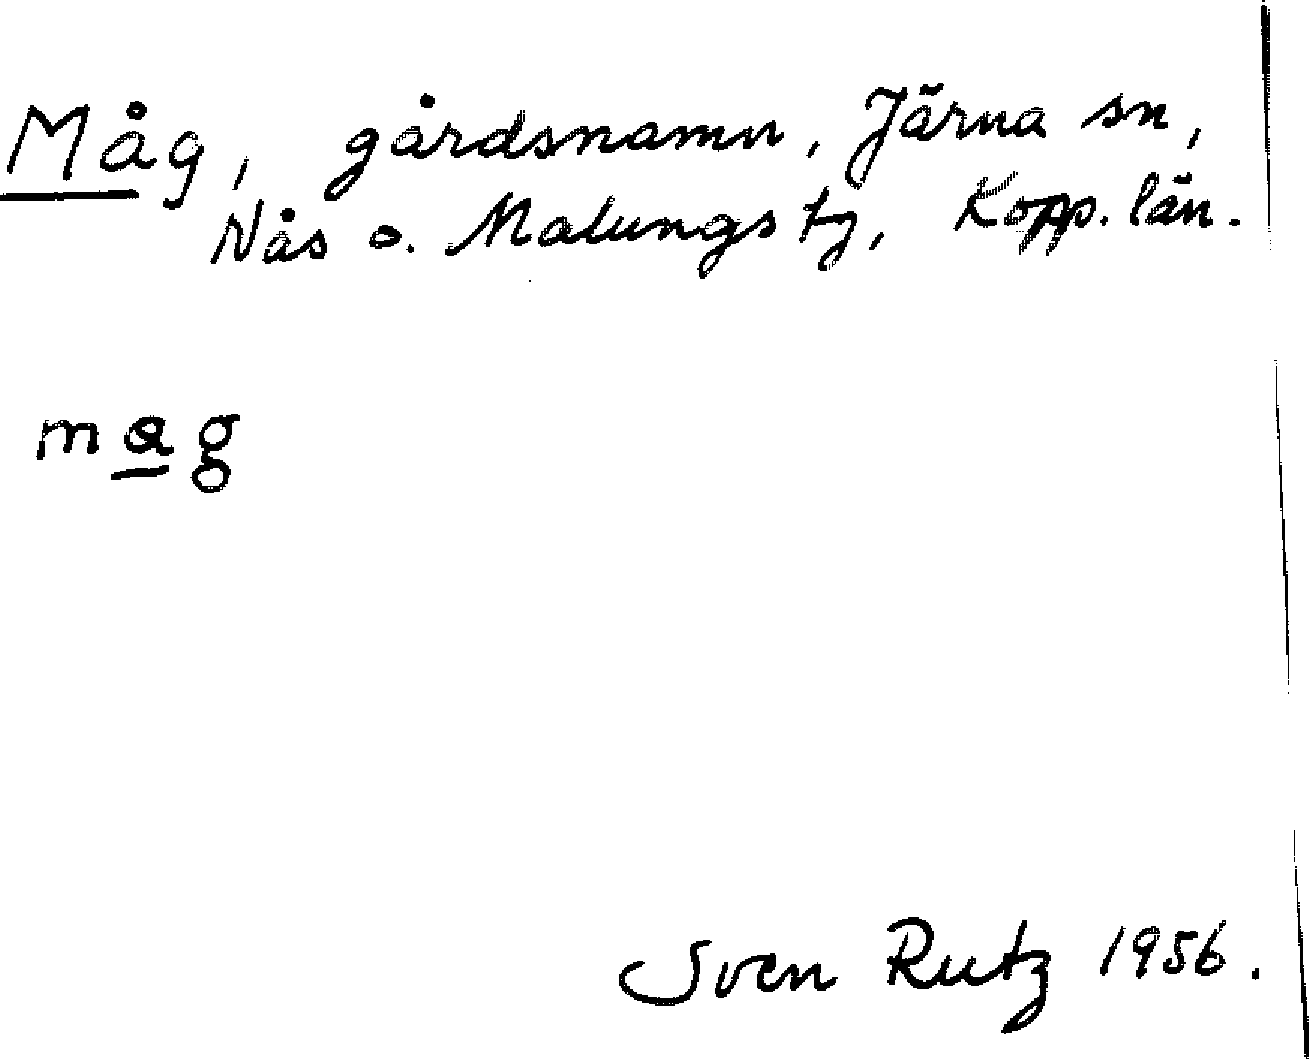 Måg, gårdsnamn, Järna sn,
Nås o. Malungs tg, Kopp. län.
mag
Sven Rutz 1956.